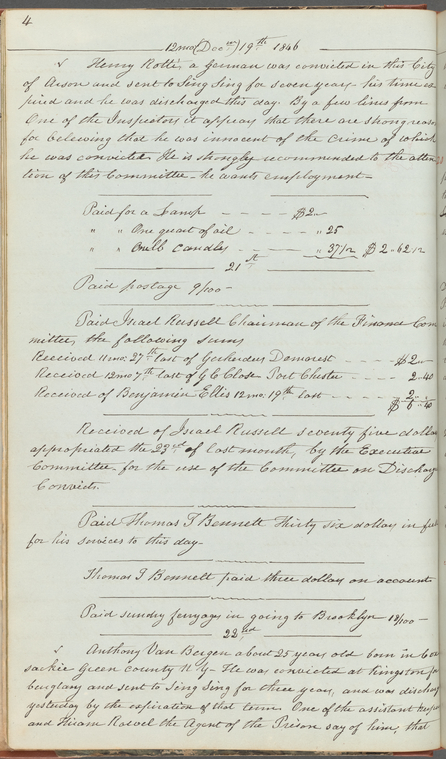 4
12mo (Decr) 19th 1846
Henry Rotti, a German was convicted in this City
of Arson and sent to Sing Sing for seven years - his time ex
pired and he was discharged this day. By a few lines from
One of the Inspectors it appears that there are strong reason
for believing that he was innocent of the crime of which
he was convicted. He is strongly recommended to the atten
tion of this Committee - he wants employment -
Paid for a Lamp - - - - $2 -
" " One quart of oil - - - - " 25
" " One lb candles - - - - " 37 1/2 $2 - 62 1/2
21st
Paid postage 9/100 -
Paid Israel Russell Chairman of the Finance Com
mittee, the following sums
Received 11mo. 27th last of Demorest - - - - $2 -
Received 12mo 7th last of G C Close Port Chester - - - - 2.40
Received of Benjamin Ellis 12mo. 19th last - - - - 2 -
$6.40
Received of Israel Russell seventy five dollars
appropriated the 23rd of last month, by the Executive
Committee, for the use of the Committee on Discharg
Convicts.
Paid Thomas T Bennett Thirty six dollars in full
for his services to this day -
Thomas T Bennett paid three dollars on account
Paid sundry ferryages in going to Brooklyn /100 -
22nd
Anthony Van Bergen about 25 years old born in Cox
sackie Green County N.Y - He was convicted at Kingston for
burglary and sent to Sing Sing for three years, and was discharg
yesterday by the expiration of that term. One of the assistant
and Hiram the Agent of the Prison say of him, that